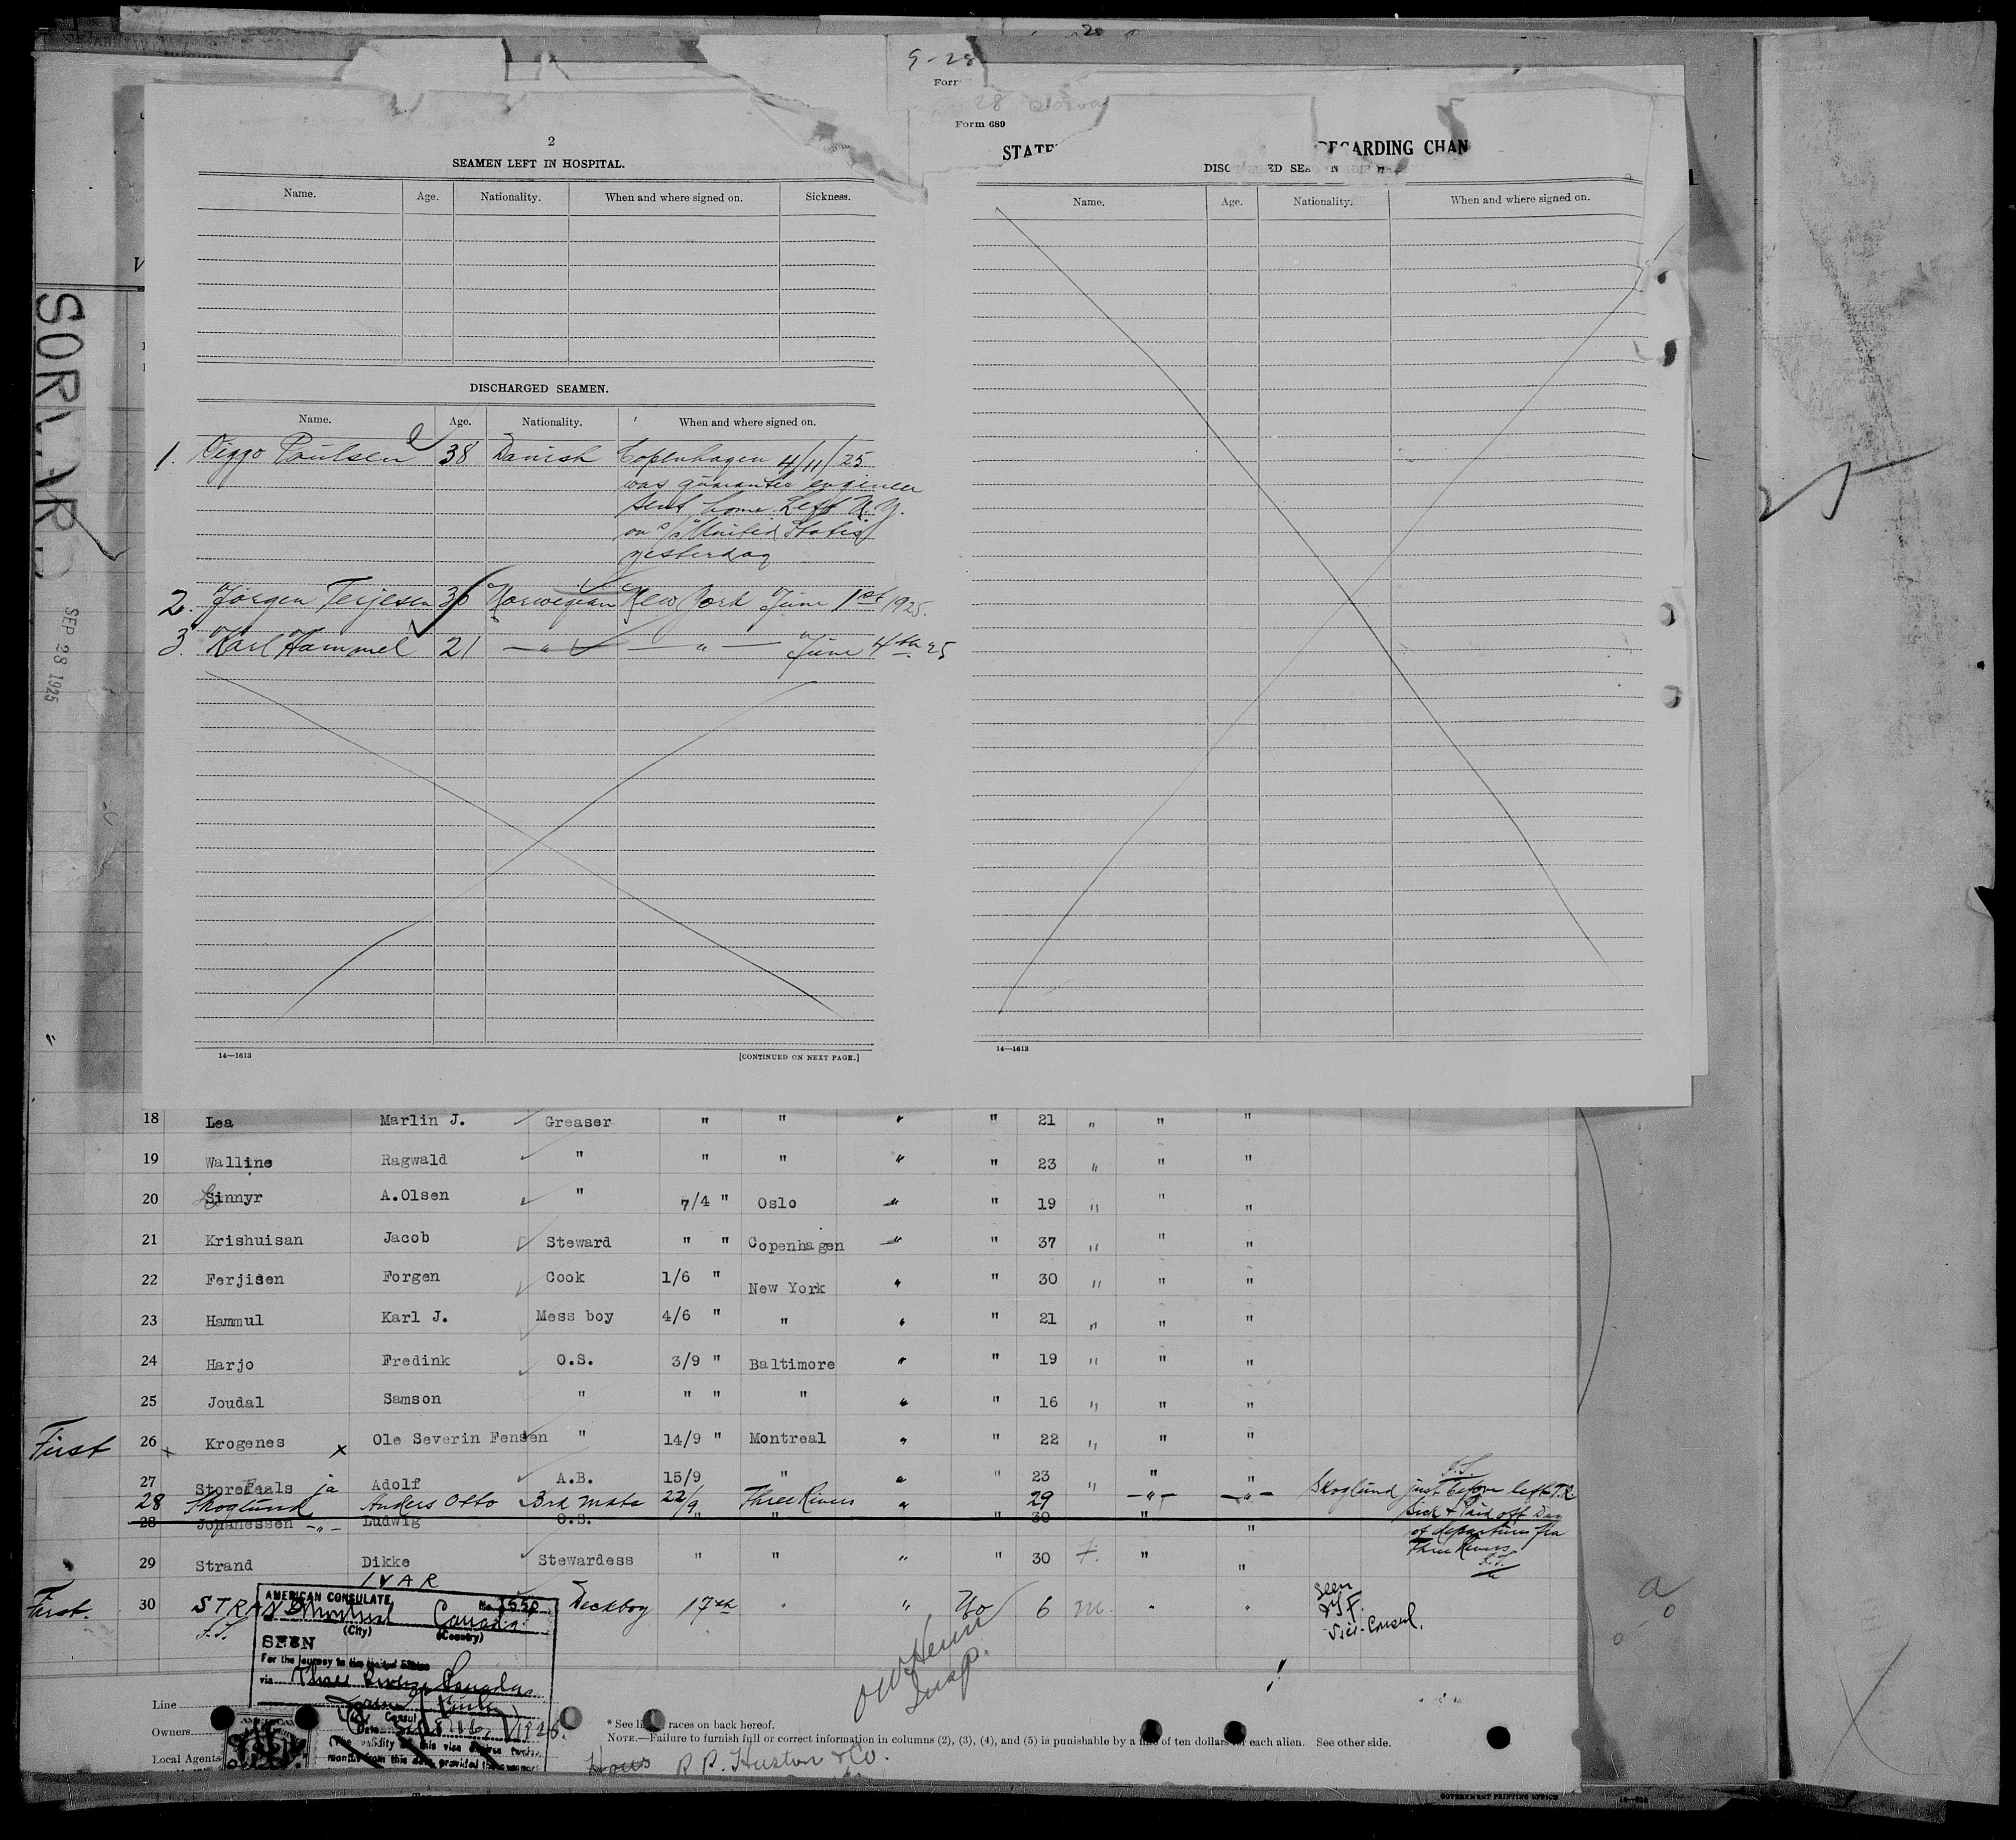 20
9-28
Form 689
2
SEAMEN LEFT IN HOSPITAL.
Name. Age. Nationality. When and where signed on. Sickness.
DISCHARGED SEAMEN.
Name. Age. Nationality. When and where signed on.
1. Viggo Poulsen 38 Danish Copenhagen 4/11/25
was guarantee engineer
sent home. Left N.Y.
on S/S "United States"
yesterday
2. Jörgen Terjesen 30 Norwegian New York June 1st 1925.
3. Karl Hammel 21 — " — — " — June 4th 25
14—1613 [CONTINUED ON NEXT PAGE.]
REGARDING CHAN
Name. Age. Nationality. When and where signed on.
14—1613
SEP 28 1925
18 Lea Marlin J. Greaser " " " " 21 " " "
19 Walline Ragwald " " " " " 23 " " "
20 Sinnyr A.Olsen " 7/4 " Oslo " " 19 " " "
21 Krishuisan Jacob Steward " " Copenhagen " " 37 " " "
22 Ferjisen Forgen Cook 1/6 " New York " " 30 " " "
23 Hammul Karl J. Mess boy 4/6 " " " " 21 " " "
24 Harjo Fredink O.S. 3/9 " Baltimore " " 19 " " "
25 Joudal Samson " " " " " " 16 " " "
First 26 x Krogenes x Ole Severin Fensen " 14/9 " Montreal " " 22 " " "
27 Adolf A.B. 15/9 " " " 23 " " "
28 Skoglund Anders Otto 3rd Mate 22/9 Three Rivers " 29 — " — — " — Skoglund just before left T.R.
28 Johanessen — " — Ludwig O.S. " " " " 30 " " sick & Paid off Day
of departure fra
Three Rivers
29 Strand Dikke Stewardess " " " " 30 f. " "
First. 30 STRAND IVAR Deckboy 17th " " No 6 m. " "
Seen
Vice-Consul.
AMERICAN CONSULATE No. 1550
Montreal Canada
(City) (Country)
SEEN
For the journey to the United States
via Three Rivers Canada
Consul
Date
(The validity of this visa expires twelve
months from this date, provided the
Line
Owners
Local Agents
Insp.
* See list races on back hereof.
NOTE.—Failure to furnish full or correct information in columns (2), (3), (4), and (5) is punishable by a fine of ten dollars for each alien. See other side.
R P. Huston & Co.
GOVERNMENT PRINTING OFFICE